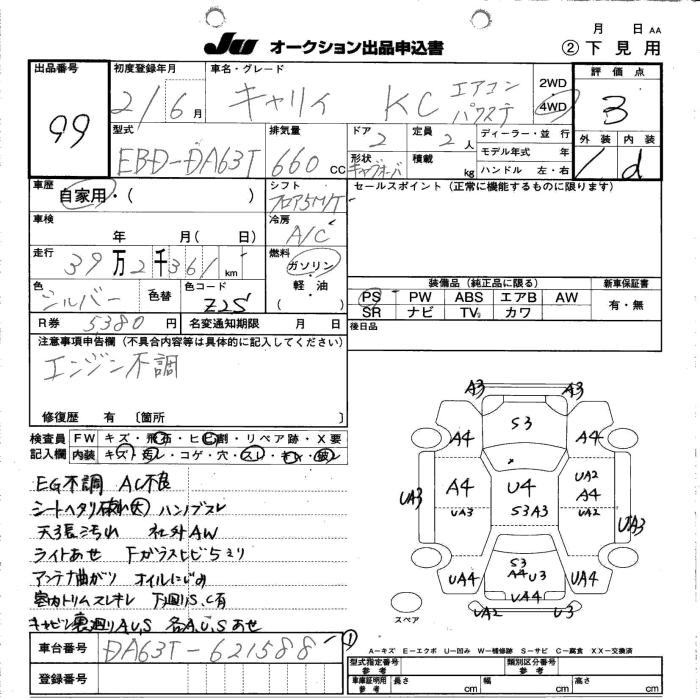 月 日 AA
JU オークション出品申込書 ② 下見用
出品番号 初度登録年月 車名・グレード 評価点
99 21/6月 キャリイ KC エアコン パワステ 2WD 4WD 3
外装 内装
型式 排気量 ドア 定員 ディーラー・並行
EBD-DA63T 660 CC 2 2人 モデル年式 年 d
形状 積載 kg ハンドル 左・右
キャブオーバ
車歴 シフト セールスポイント(正常に機能するものに限ります)
自家用・( ) フロア5M/T
車検 冷房
年 月( 日) A/C
走行 燃料
39万2千361km ガソリン・軽・油( )
装備品(純正品に限る) 新車保証書
色 色替 色コード
シルバー Z2S
PS PW ABS エアB AW 有・無
SR ナビ TV カワ
R券 5380円 名変通知期限 月 日
後日品
注意事項申告欄(不具合内容等は具体的に記入してください)
エンジン不調
修復歴 有 〔箇所 〕
検査員記入欄 FW キズ・飛石・ヒビ割・リペア跡・X要
内装 キズ・汚れ・コゲ・穴・スレ・キレ・破レ
EG不調 AC不良
シートヘタリ破れ大 ハンドブスレ
天張汚れ 社外AW
ライトあせ Fガラスヒビ5ミリ
アンテナ曲がり オイルにじみ
室内トリムスレキレ 下廻りS.C有
キャビン裏廻りA.U.S 各A.U.Sあせ
A3 A3
S3
A4 A4
UA2
A4 U4 A4
UA3 UA3 S3A3 UA2 UA3
S3
A4 U3
UA4 UA4 UA4
UA2 U3
スペア
車台番号 DA63T-621588 ①
登録番号
A-キズ E-エクボ U-凹み W-補修跡 S-サビ C-腐食 XX-交換済
型式指定番号 参考 類別区分番号 参考
車庫証明用 参考 長さ cm 幅 cm 高さ cm